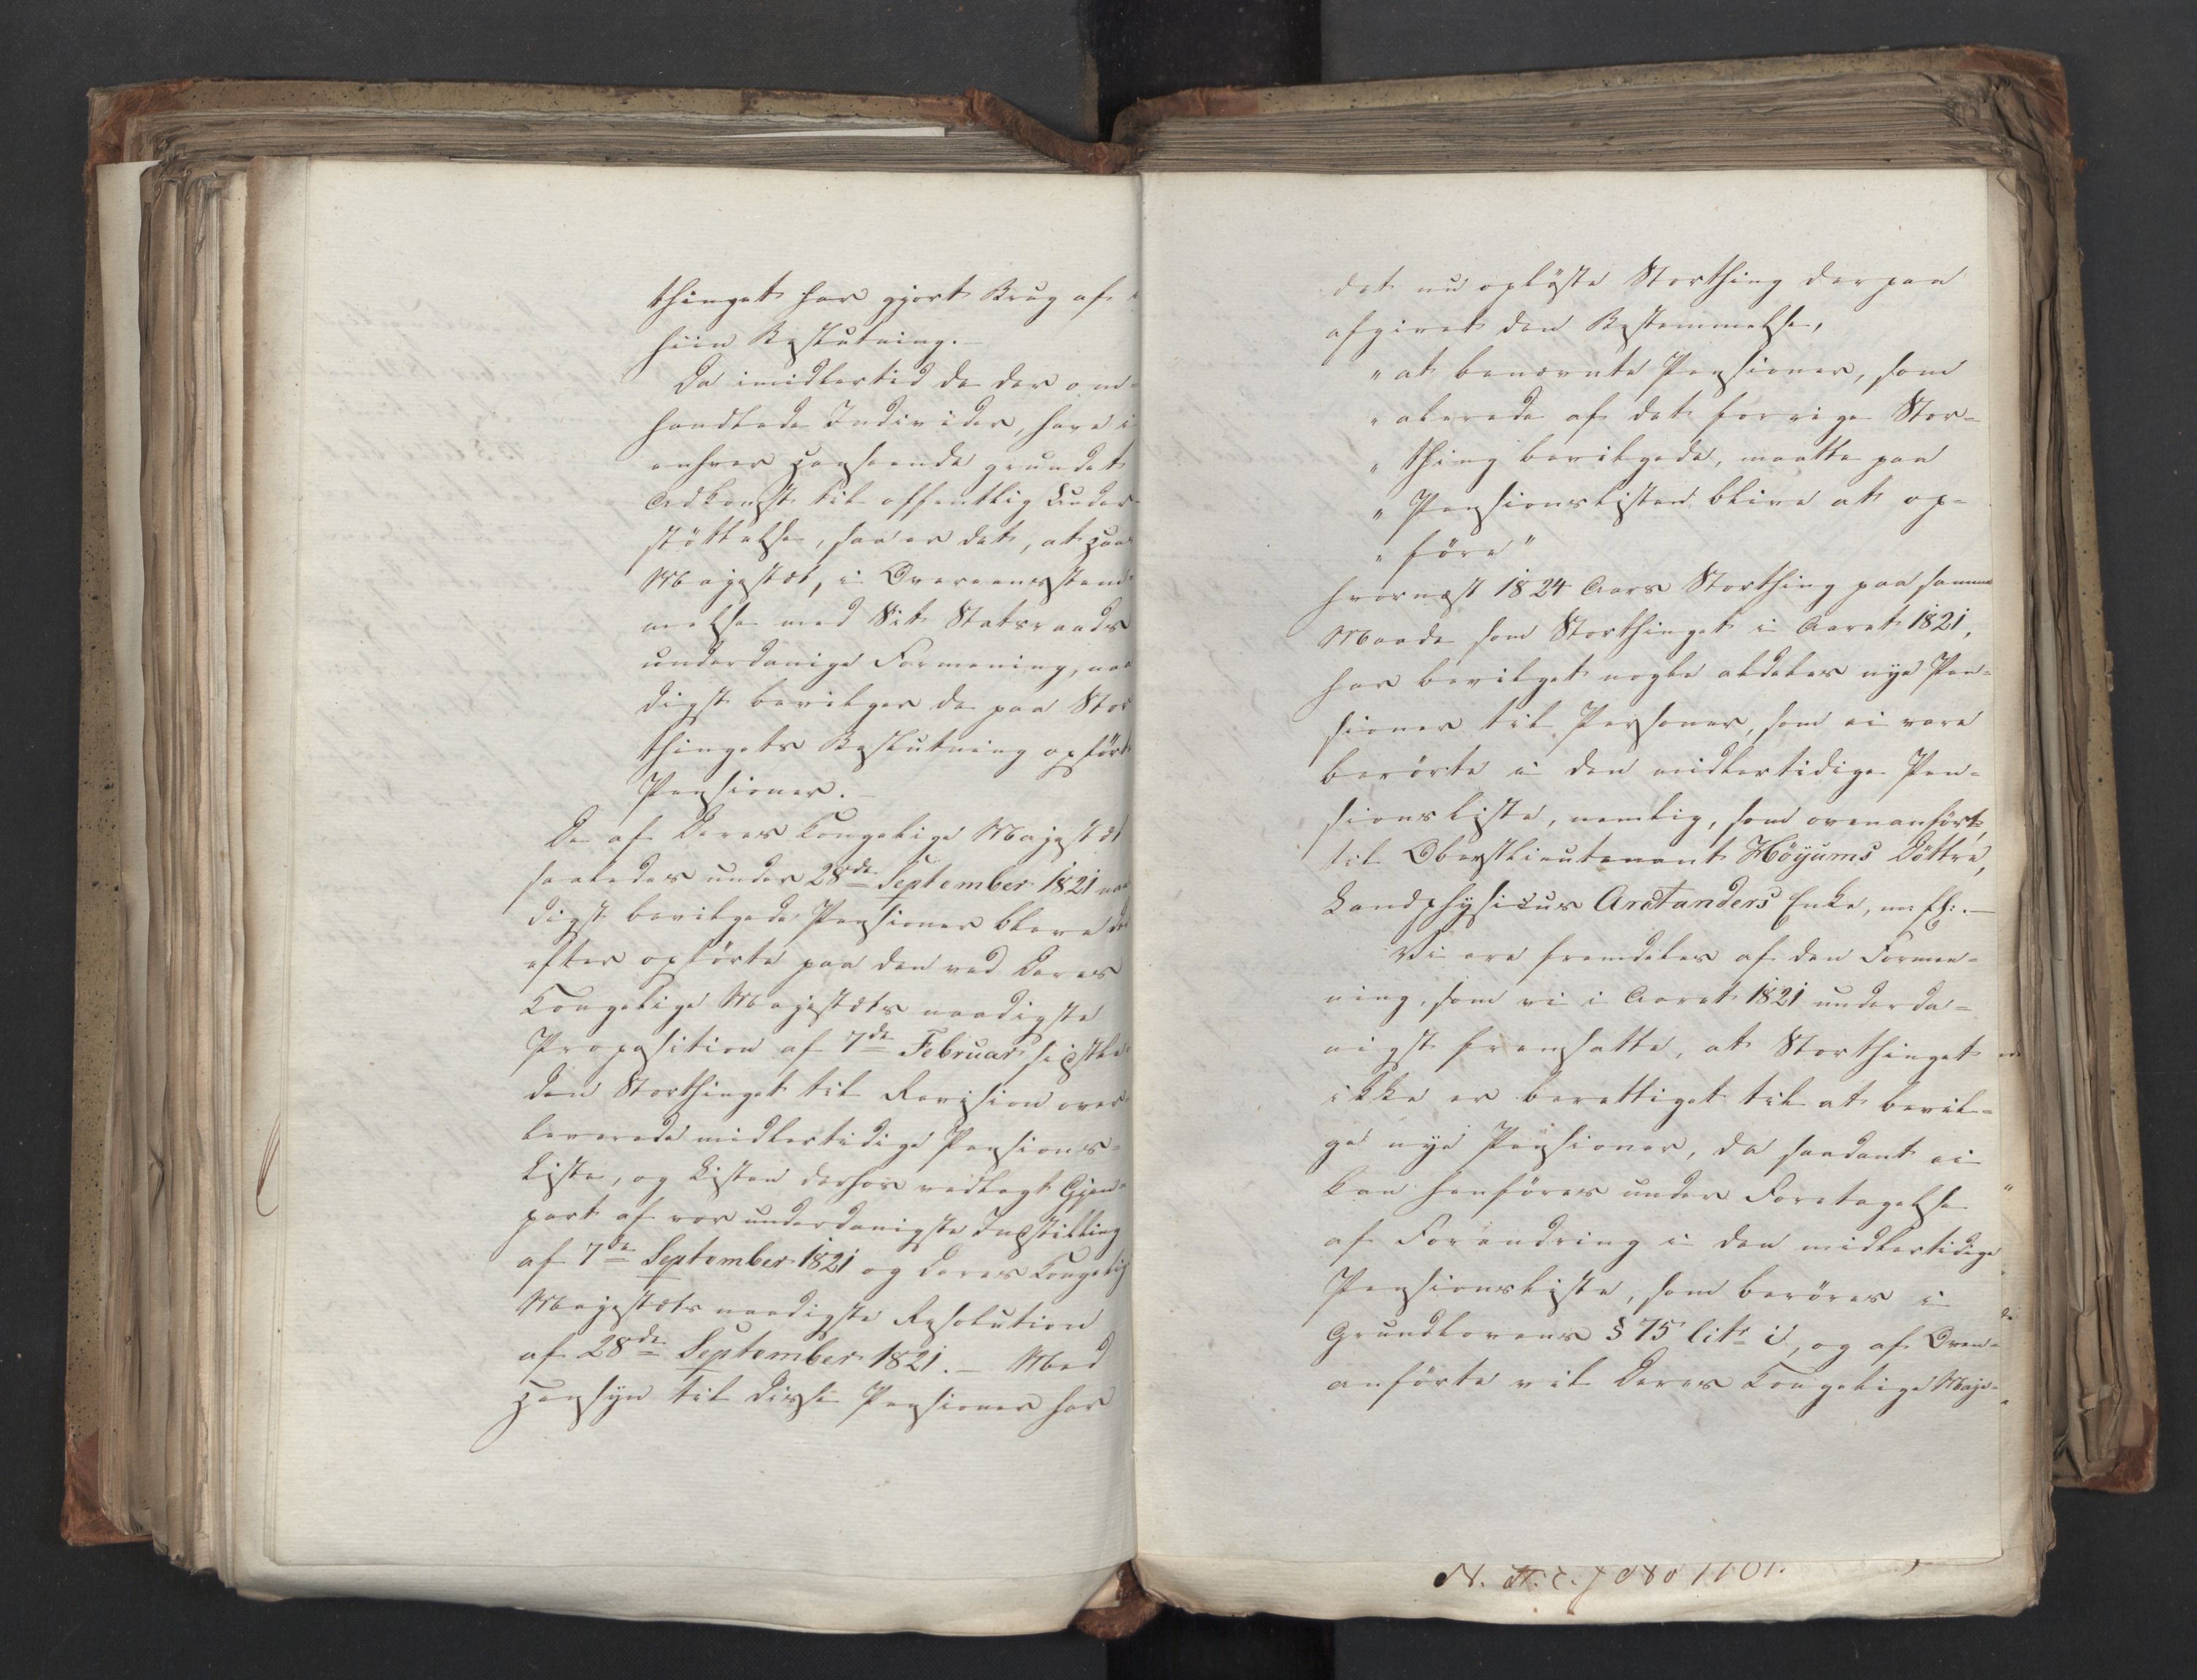 thinget har gjort Brug af
hiin Beslutning.—
Da imidlertid de der om-
handlede Individer, have i
enhver Henseende grundet
Adkomst til offentlig Under-
støttelse, saa er det, at Hans
Majestæt, i Overeensstem-
melse med Sit Statsraads
underdanige Formening, naa
digst bevilger de paa Stor
thingets Beslutning opførte
Pensioner.—
De af Deres Kongelige Majestæt
saaledes under 28de September 1821 naa
digst bevilgede Pensioner bleve der
efter opførte paa den ved Deres
Kongelige Majestæts naadigste
Proposition af 7de Februar sidstle
den Storthinget til Revision over-
leverede midlertidige Pensions-
Liste, og Listen derhos vedlagt Gjen-
part af vor underdanigste Indstilling
af 7de September 1821 og Deres Kongelig
Majestæts naadigste Resolution
af 28de September 1821.— Med
Hensyn til disse Pensioner har
det nu opløste Storthing derpaa
afgivet den Bestemmelse,
"at benævnte Pensioner, som
"allerede af det forrige Stor-
"thing bevilgede, maatte paa
"Pensionslisten blive at op-
"føre"
hvornæst 1824 Aars Storthing paa samme
Maade som Storthinget i Aaret 1821,
har bevilget nogle aldeles nye Pen-
sioner til Personer, som ei vare
berørte i den midlertidige Pen-
sionsliste, nemlig, som ovenanført,
til Oberstlieutenant Höyums Döttre,
Landphysicus Arctanders Enke, m: fl:.—
Vi ere fremdeles af den Forme-
ning, som vi i Aaret 1821 underda-
nigst fremsatte, at Storthinget
ikke er berettiget til at bevil-
ge nye Pensioner, da saadant ei
kan henføres under Foretagelse
af Forandring i den midlertidige
Pensionsliste, som berøres i
Grundlovens § 75 litr i, og af Oven-
anførte vil Deres Kongelige Maje-